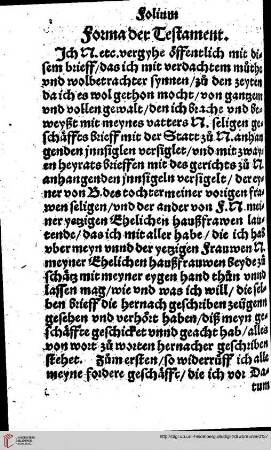 Folium
Forma der Testament.
Ich N. etc. vergyhe öffentlich mit di-
sem brieff/das ich mit verdachtem müthe
vnd wolbetrachter synnen/zů den zeyten
da ich es wol gethon mocht/von gantzem
vnd vollen gewalt/den ich brache vnd be-
weyßt mit meynes vatters N. seligen ge-
schäffts brieff mit der Statt zů N. anhan
genden jnnsigeln versiglet/vnd mit zway-
en heyrats brieffen mit des gerichts zů N.
anhangenden jnnsigeln versigelt/der ey-
ner von B. des tochter meiner vorigen fra-
wen seligen/vnd der ander von F. N. mei-
ner yetzigen Ehelichen haußfrawen lau-
tende/das ich mit aller habe/die ich hab
vber meyn vnnd der yetzigen Frauwen N.
meyner Ehelichen haußfrauwen beyde zů
schätz mit meyner eygen hand thůn vnnd
lassen mag/wie vnd was ich will/die sel-
ben brieff die hernach geschriben zeügenn
gesehen vnd verhört haben/diß meyn ge-
schäffte geschicket vnnd geacht hab/alles
von wort zů worten hernacher geschriben
stehet. Zům ersten/so widerrüff ich alle
meyne fordere geschäfft/die ich vor Da-
tum